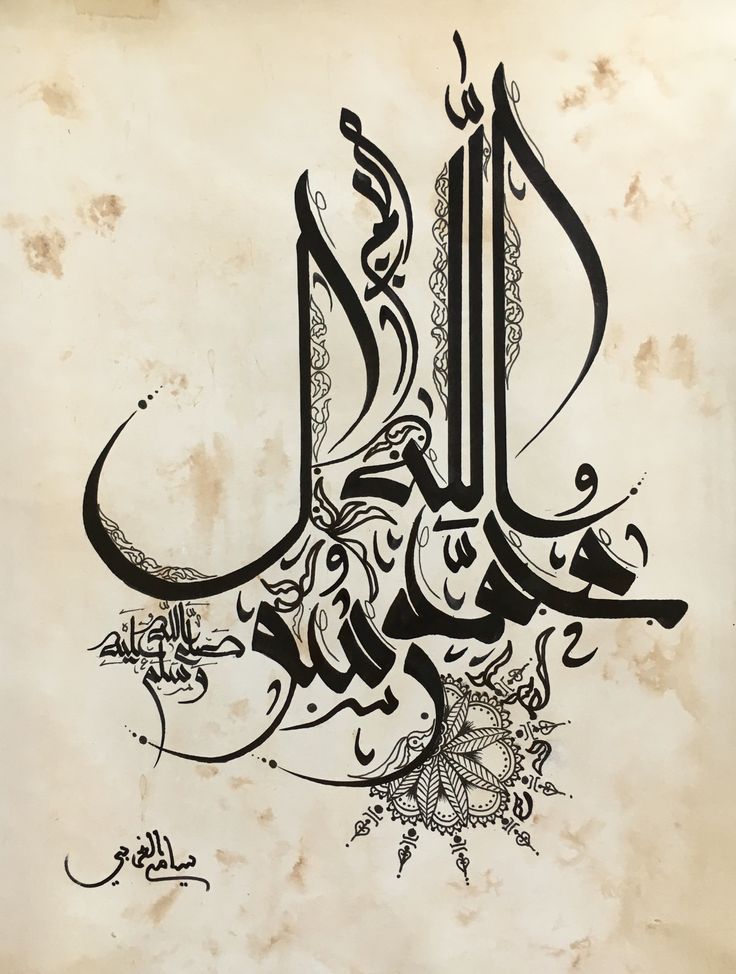 محمد رسول الله
صلى الله عليه وسلم
سامي الغرابي